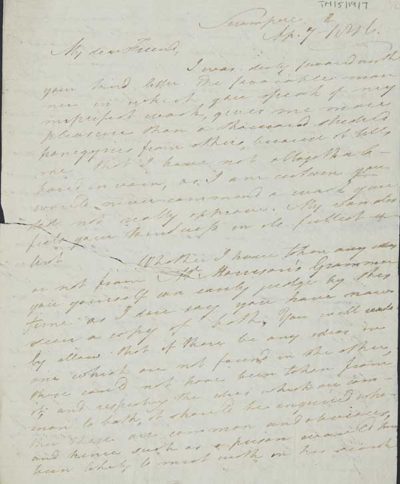 TM/5/19/7
Serampore
Ap. 7th 1816.
My dear Friend,
I was duly favoured with
your kind letter. The favourable man
ner in which you speak of my
imperfect work, gives me more
pleasure than a thousand studied
panegyrics from others, because it tells
me that I have not altogether la-
boured in vain, as I am certain you
would never commend a work you
did not really approve. My thanks
for your kindness in its fullest
Whether I have taken any ideas
or not from Mr. Harrison's Grammar
you yourself can easily judge by this
time as I dare say you have now
seen a copy of both. You will readi
ly allow that if there be any ideas in
one which are not found in the other,
these could not have been taken from
it and respecting the ideas which are com-
mon to both, it should be enquired whe-
ther these are common and obvious,
and hence such as a person would have
been likely to meet with in his search